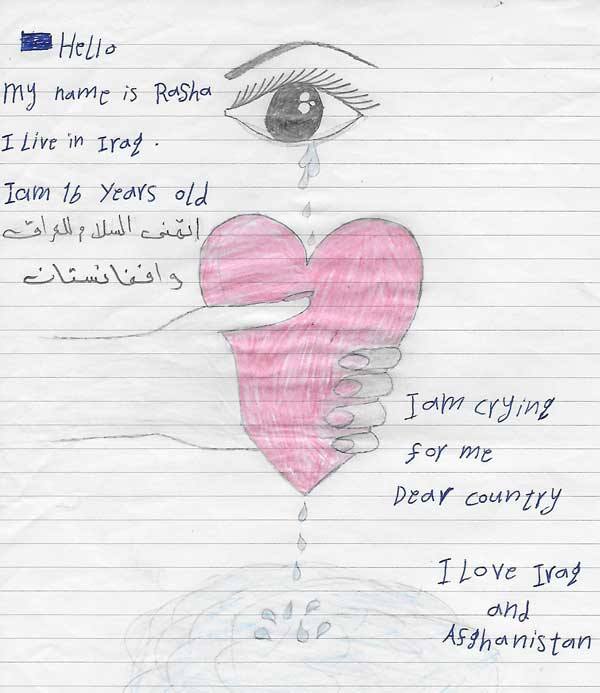 Hello
My name is Rasha
I Live in Iraq.
Iam 16 Years old
اتمنى السلام للعراق
وافغانستان
I am crying
for me
Dear country
I Love Iraq
and
Afghanistan